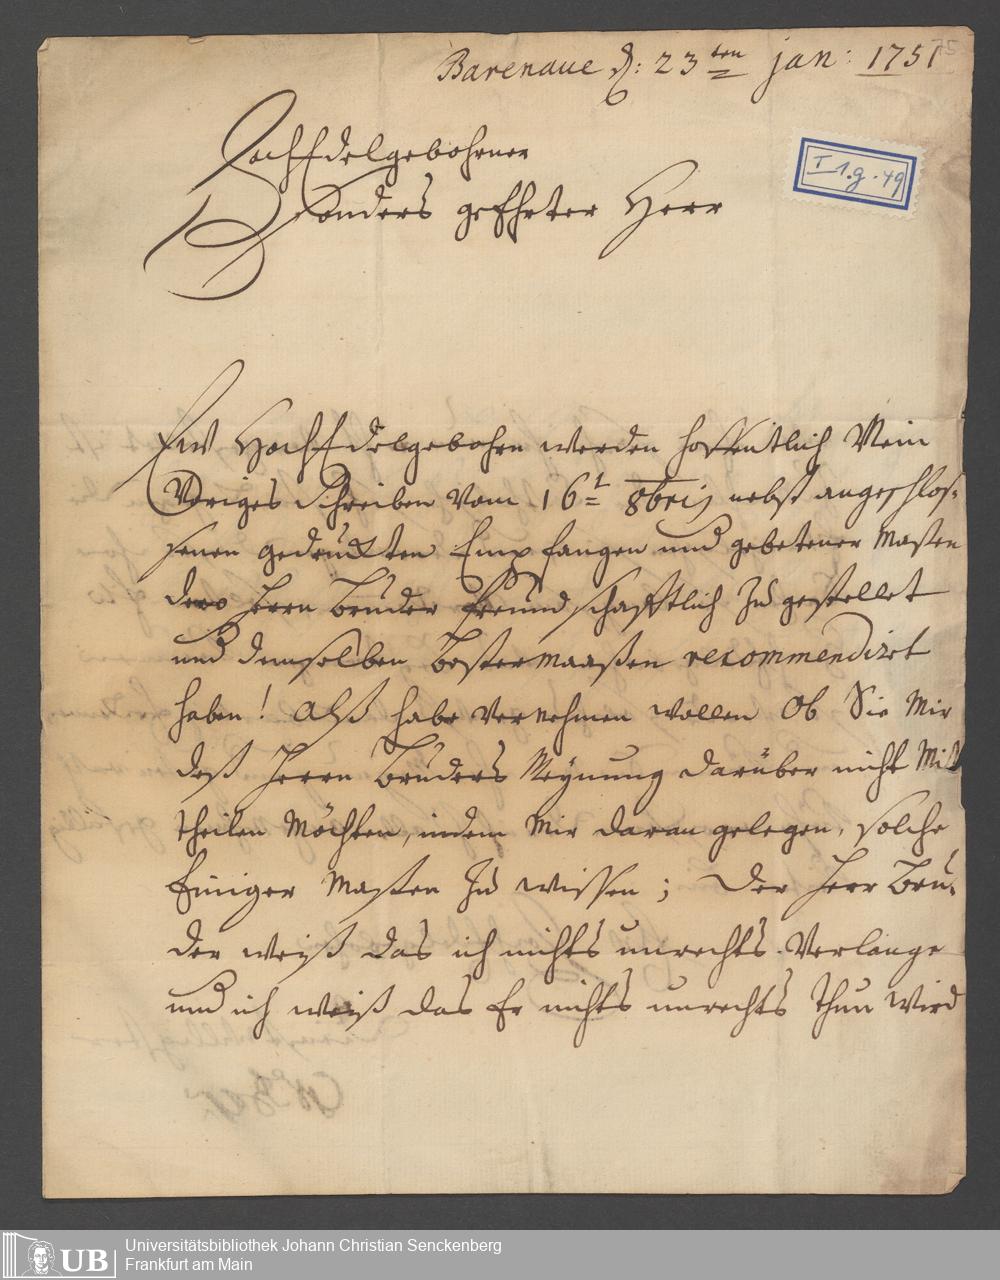 Barenaue d: 23ten jan: 1751
75
HochEdelgebohrner
Besonders geEhrter Herr
I 1.g.49
Ew HochEdelgebohrn werden hoffentlich Mein
Voriges Schreiben vom 16t 8bris nebst angeschlos-
senen gedruckten Empfangen und gebetener Maßen
dero Herrn Bruder Freundschafftlich Zu gestellet
und demselben bestermaaßen recommendiret
haben! Alß habe vernehmen wollen Ob Sie Mir
deß Herrn Bruders Meynung darüber nicht Mit
theilen Möchten, indem Mir daran gelegen, solche
Einiger Maßen Zu wissen; Der Herr Bru-
der weiß das ich nichts unrechts Verlange
und ich weiß das Er nichts unrechts thun wird
UB
Universitätsbibliothek Johann Christian Senckenberg
Frankfurt am Main